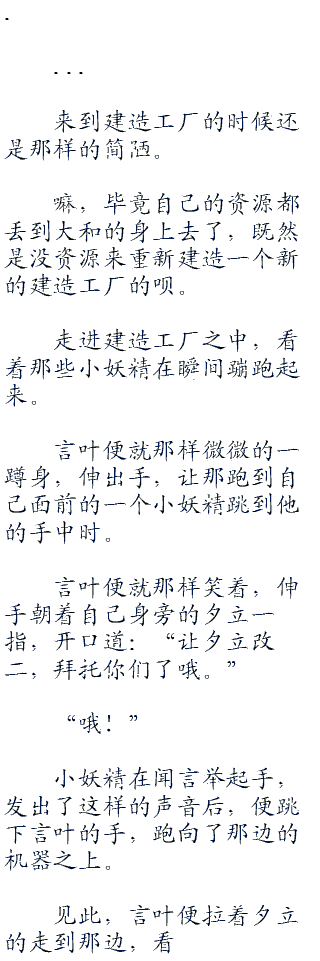 .
...
来到建造工厂的时候还
是那样的简陋。
嘛，毕竟自己的资源都
丢到大和的身上去了，既然
是没资源来重新建造一个新
的建造工厂的呗。
走进建造工厂之中，看
着那些小妖精在瞬间蹦跑起
来。
言叶便就那样微微的一
蹲身，伸出手，让那跑到自
己面前的一个小妖精跳到他
的手中时。
言叶便就那样笑着，伸
手朝着自己身旁的夕立一
指，开口道：“让夕立改
二，拜托你们了哦。”
“哦！”
小妖精在闻言举起手，
发出了这样的声音后，便跳
下言叶的手，跑向了那边的
机器之上。
见此，言叶便拉着夕立
的走到那边，看